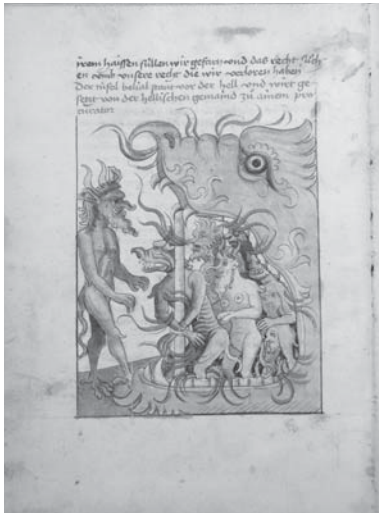 irem haissen süllen wir gesein vnd das recht süch-
en vmb vnsere recht die wir verloren haben
Der tüfel belial stant vor der hell vnd wirt ge-
setzt von der hellischen gemaind zü ainem pro
curator